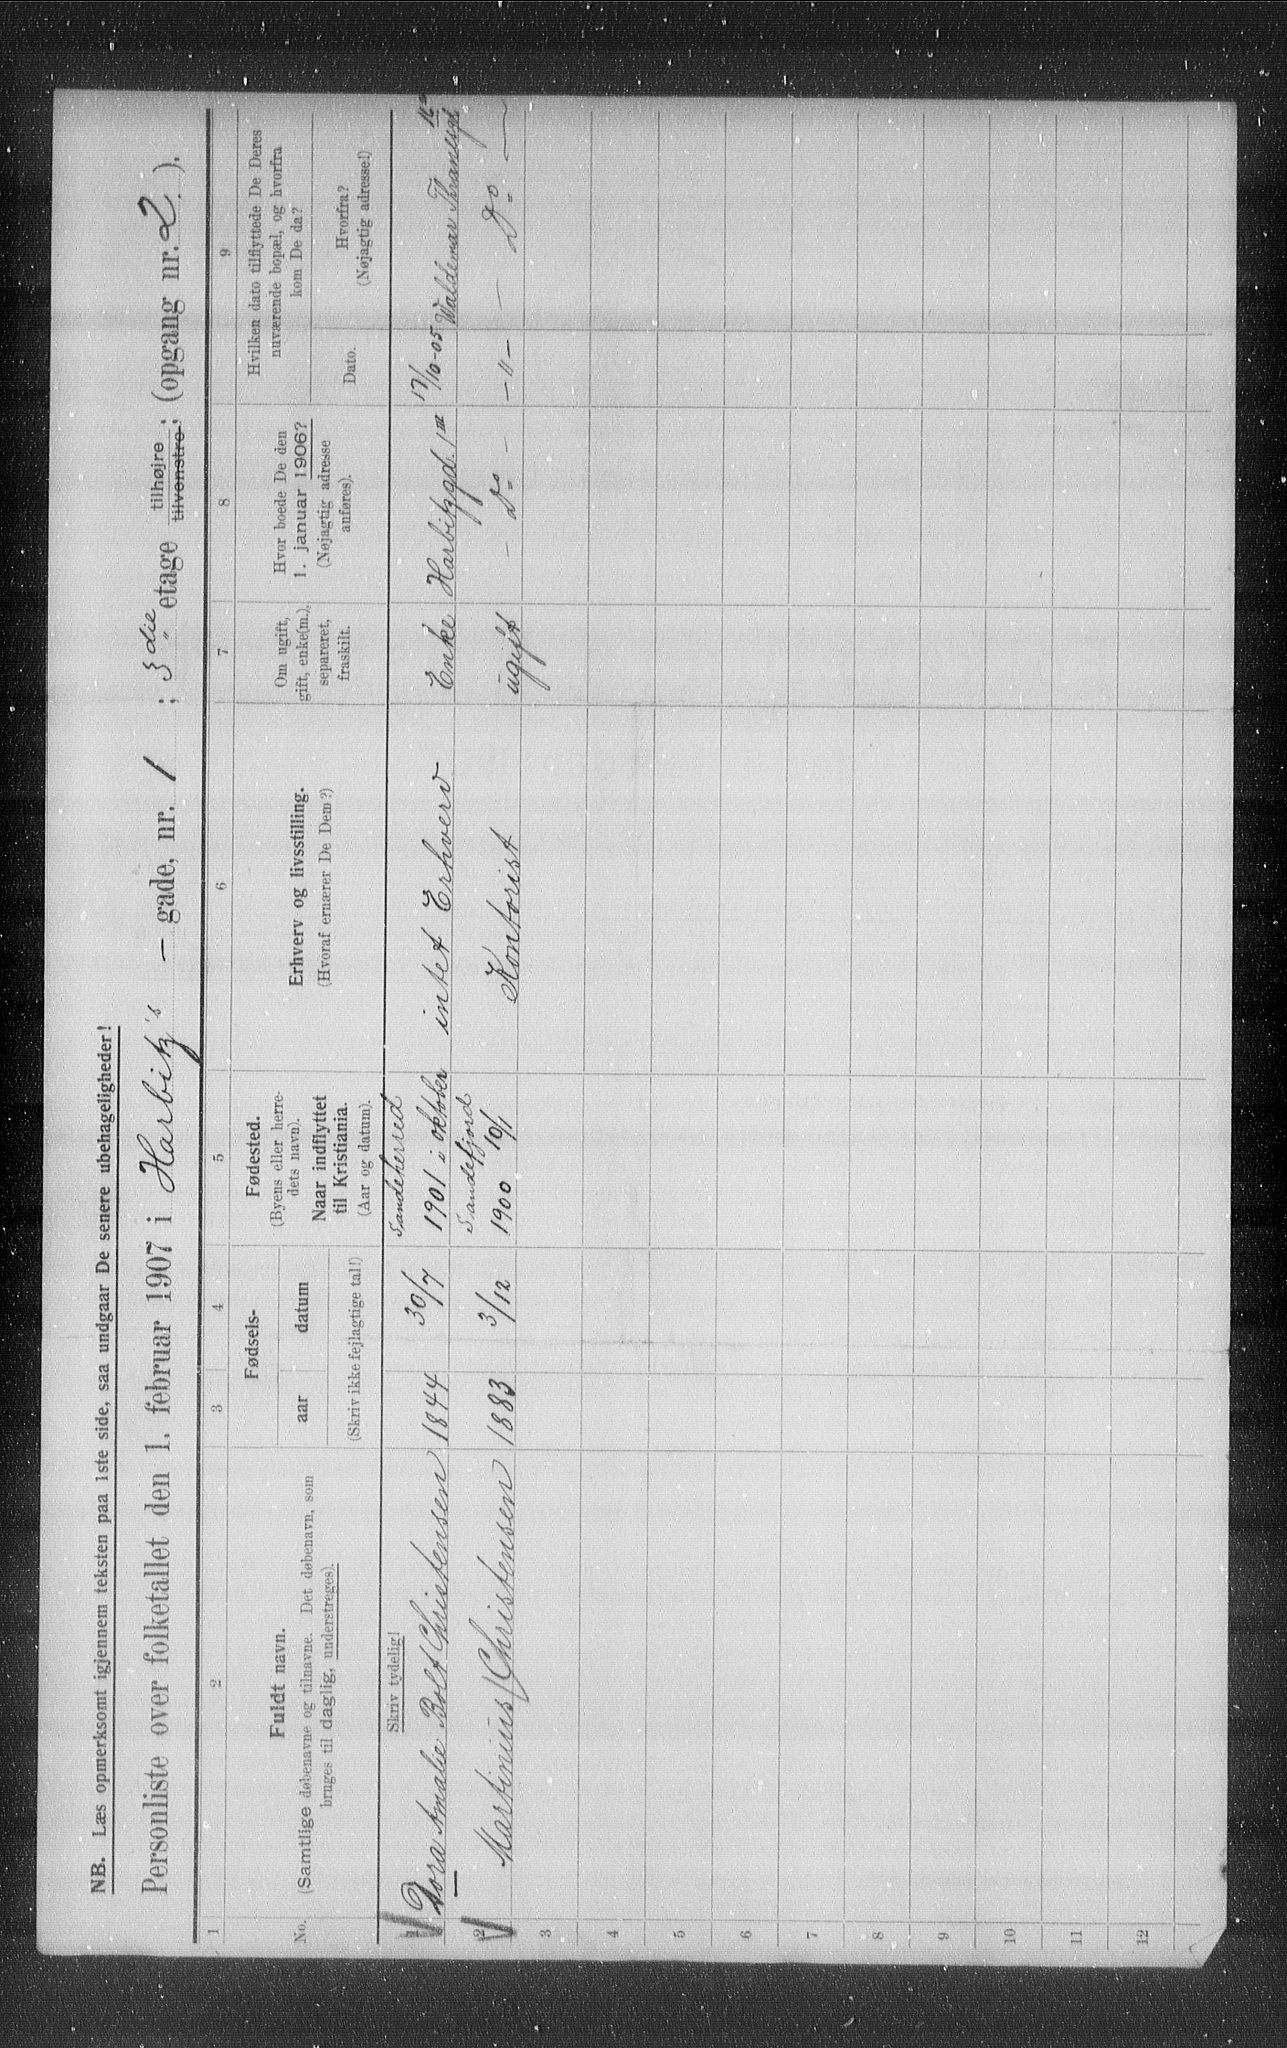 NB. Læs opmerksomt igjennem teksten paa 1ste side, saa undgaar De senere ubehageligheder!
Personliste over folketallet den 1. februar 1907 i Harbitz's – gade, nr. 1 ; 3die etage tilhøjre ; (opgang nr. 2 ).
tilvenstre
1 2 3 4 5 6 7 8 9
No.
Fuldt navn.
(Samtlige døbenavne og tilnavne. Det døbenavn, som
bruges til daglig, understreges).
Fødsels-
aar datum
(Skriv ikke fejlagtige tal!)
Fødested.
(Byens eller herre-
dets navn).
Naar indflyttet
til Kristiania.
(Aar og datum).
Erhverv og livsstilling.
(Hvoraf ernærer De Dem?)
Om ugift,
gift, enke(m.),
separeret,
fraskilt.
Hvor boede De den
1. januar 1906?
(Nøjagtig adresse
anføres).
Hvilken dato tilflyttede De Deres
nuværende bopæl, og hvorfra
kom De da?
Dato.
Hvorfra?
(Nøjagtig adresse!)
Skriv tydelig!
Sandeherred
1 Dora Amalie Bolt Christensen 1844 30/7 1901 i oktober intet Erhverv Enke Harbitzgd. 1 17/10-05 Waldemar Thranesgt
Sandefjord
2 Martinius Christensen 1883 3/12 1900 10/1 Kontorist ugift - Do - - " - - Do -
3
4
5
6
7
8
9
10
11
12